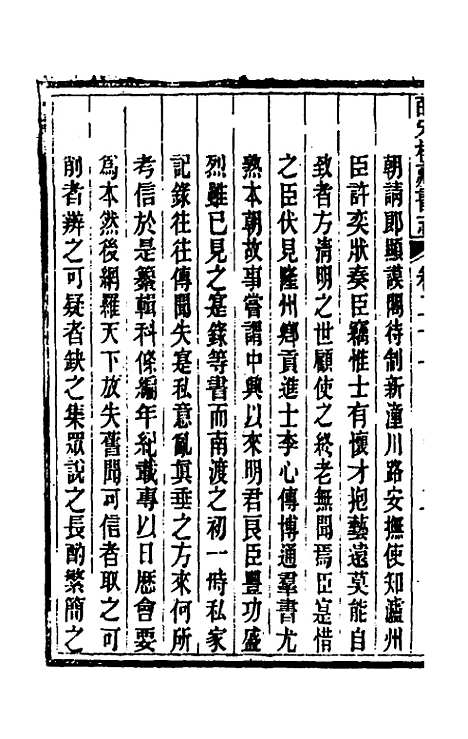 朝請郎顯謨閣待制新潼川路安撫使知瀘州
臣許奕狀奏臣竊惟士有懷才抱藝遠莫能自
致者方清明之世顧使之終老無聞焉臣寔惜
之臣伏見隆州鄉貢進士李心傳博通羣書尤
熟本朝故事嘗謂中興以來明君良臣豐功盛
烈雖已見之寔錄等書而南渡之初一時私家
記錄往往傳聞失寔私意亂真垂之方來何所
考信於是纂輯科條編年紀載專以日歷會要
爲本然後網羅天下放失舊聞可信者取之可
削者辨之可疑者缺之集眾說之長酌繁簡之